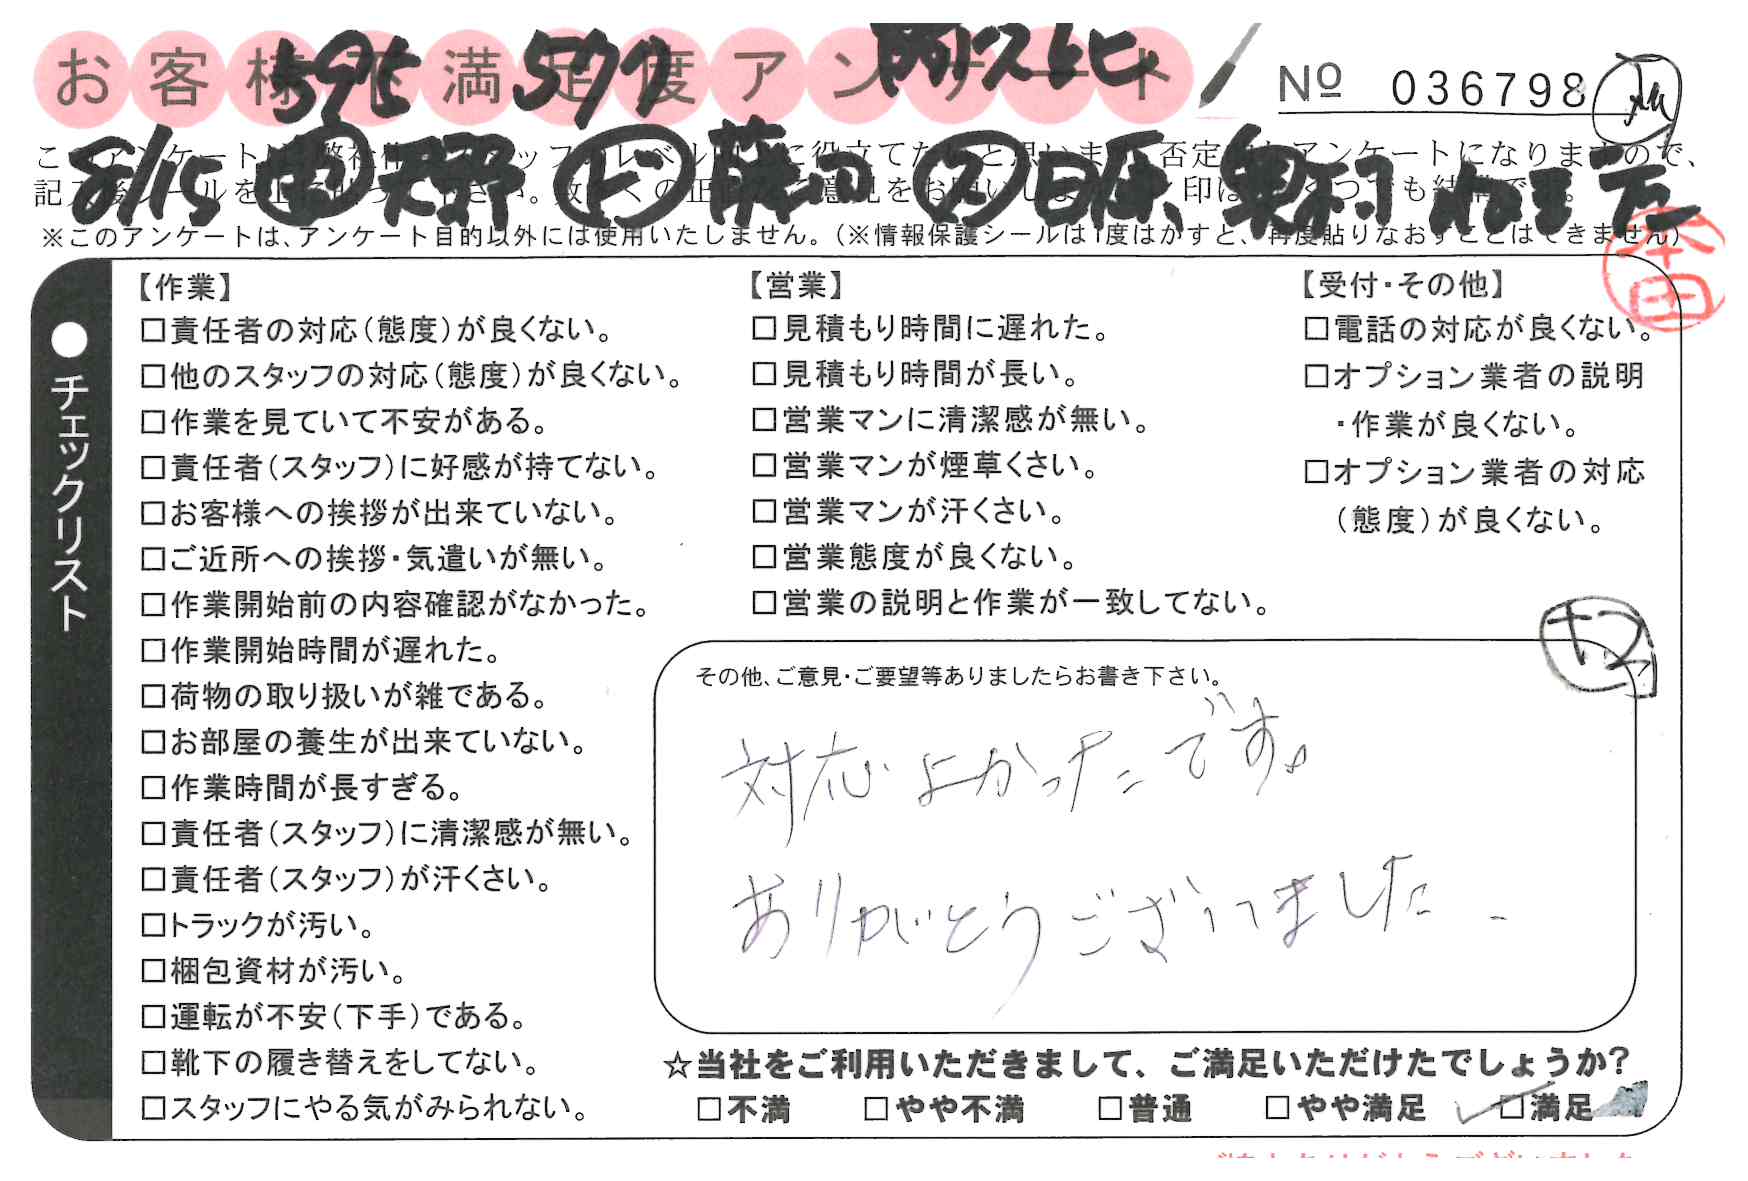 お客様不満足度アンケート
595 577
№ 036798
8/15
※このアンケートは、アンケート目的以外には使用いたしません。(※情報保護シールは1度はがすと、再度貼りなおすことはできません)
本田
●チェックリスト
【作業】
□責任者の対応(態度)が良くない。
□他のスタッフの対応(態度)が良くない。
□作業を見ていて不安がある。
□責任者(スタッフ)に好感が持てない。
□お客様への挨拶が出来ていない。
□ご近所への挨拶・気遣いが無い。
□作業開始前の内容確認がなかった。
□作業開始時間が遅れた。
□荷物の取り扱いが雑である。
□お部屋の養生が出来ていない。
□作業時間が長すぎる。
□責任者(スタッフ)に清潔感が無い。
□責任者(スタッフ)が汗くさい。
□トラックが汚い。
□梱包資材が汚い。
□運転が不安(下手)である。
□靴下の履き替えをしてない。
□スタッフにやる気がみられない。
【営業】
□見積もり時間に遅れた。
□見積もり時間が長い。
□営業マンに清潔感が無い。
□営業マンが煙草くさい。
□営業マンが汗くさい。
□営業態度が良くない。
□営業の説明と作業が一致してない。
【受付・その他】
□電話の対応が良くない。
□オプション業者の説明
・作業が良くない。
□オプション業者の対応
(態度)が良くない。
その他、ご意見・ご要望等ありましたらお書き下さい。
対応よかったです。
ありがとうございました
☆当社をご利用いただきまして、ご満足いただけたでしょうか?
□不満 □やや不満 □普通 □やや満足 □満足